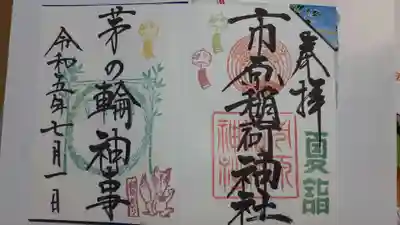 奉拝
夏詣
市原稲荷神社
茅の輪神事
令和五年七月一日